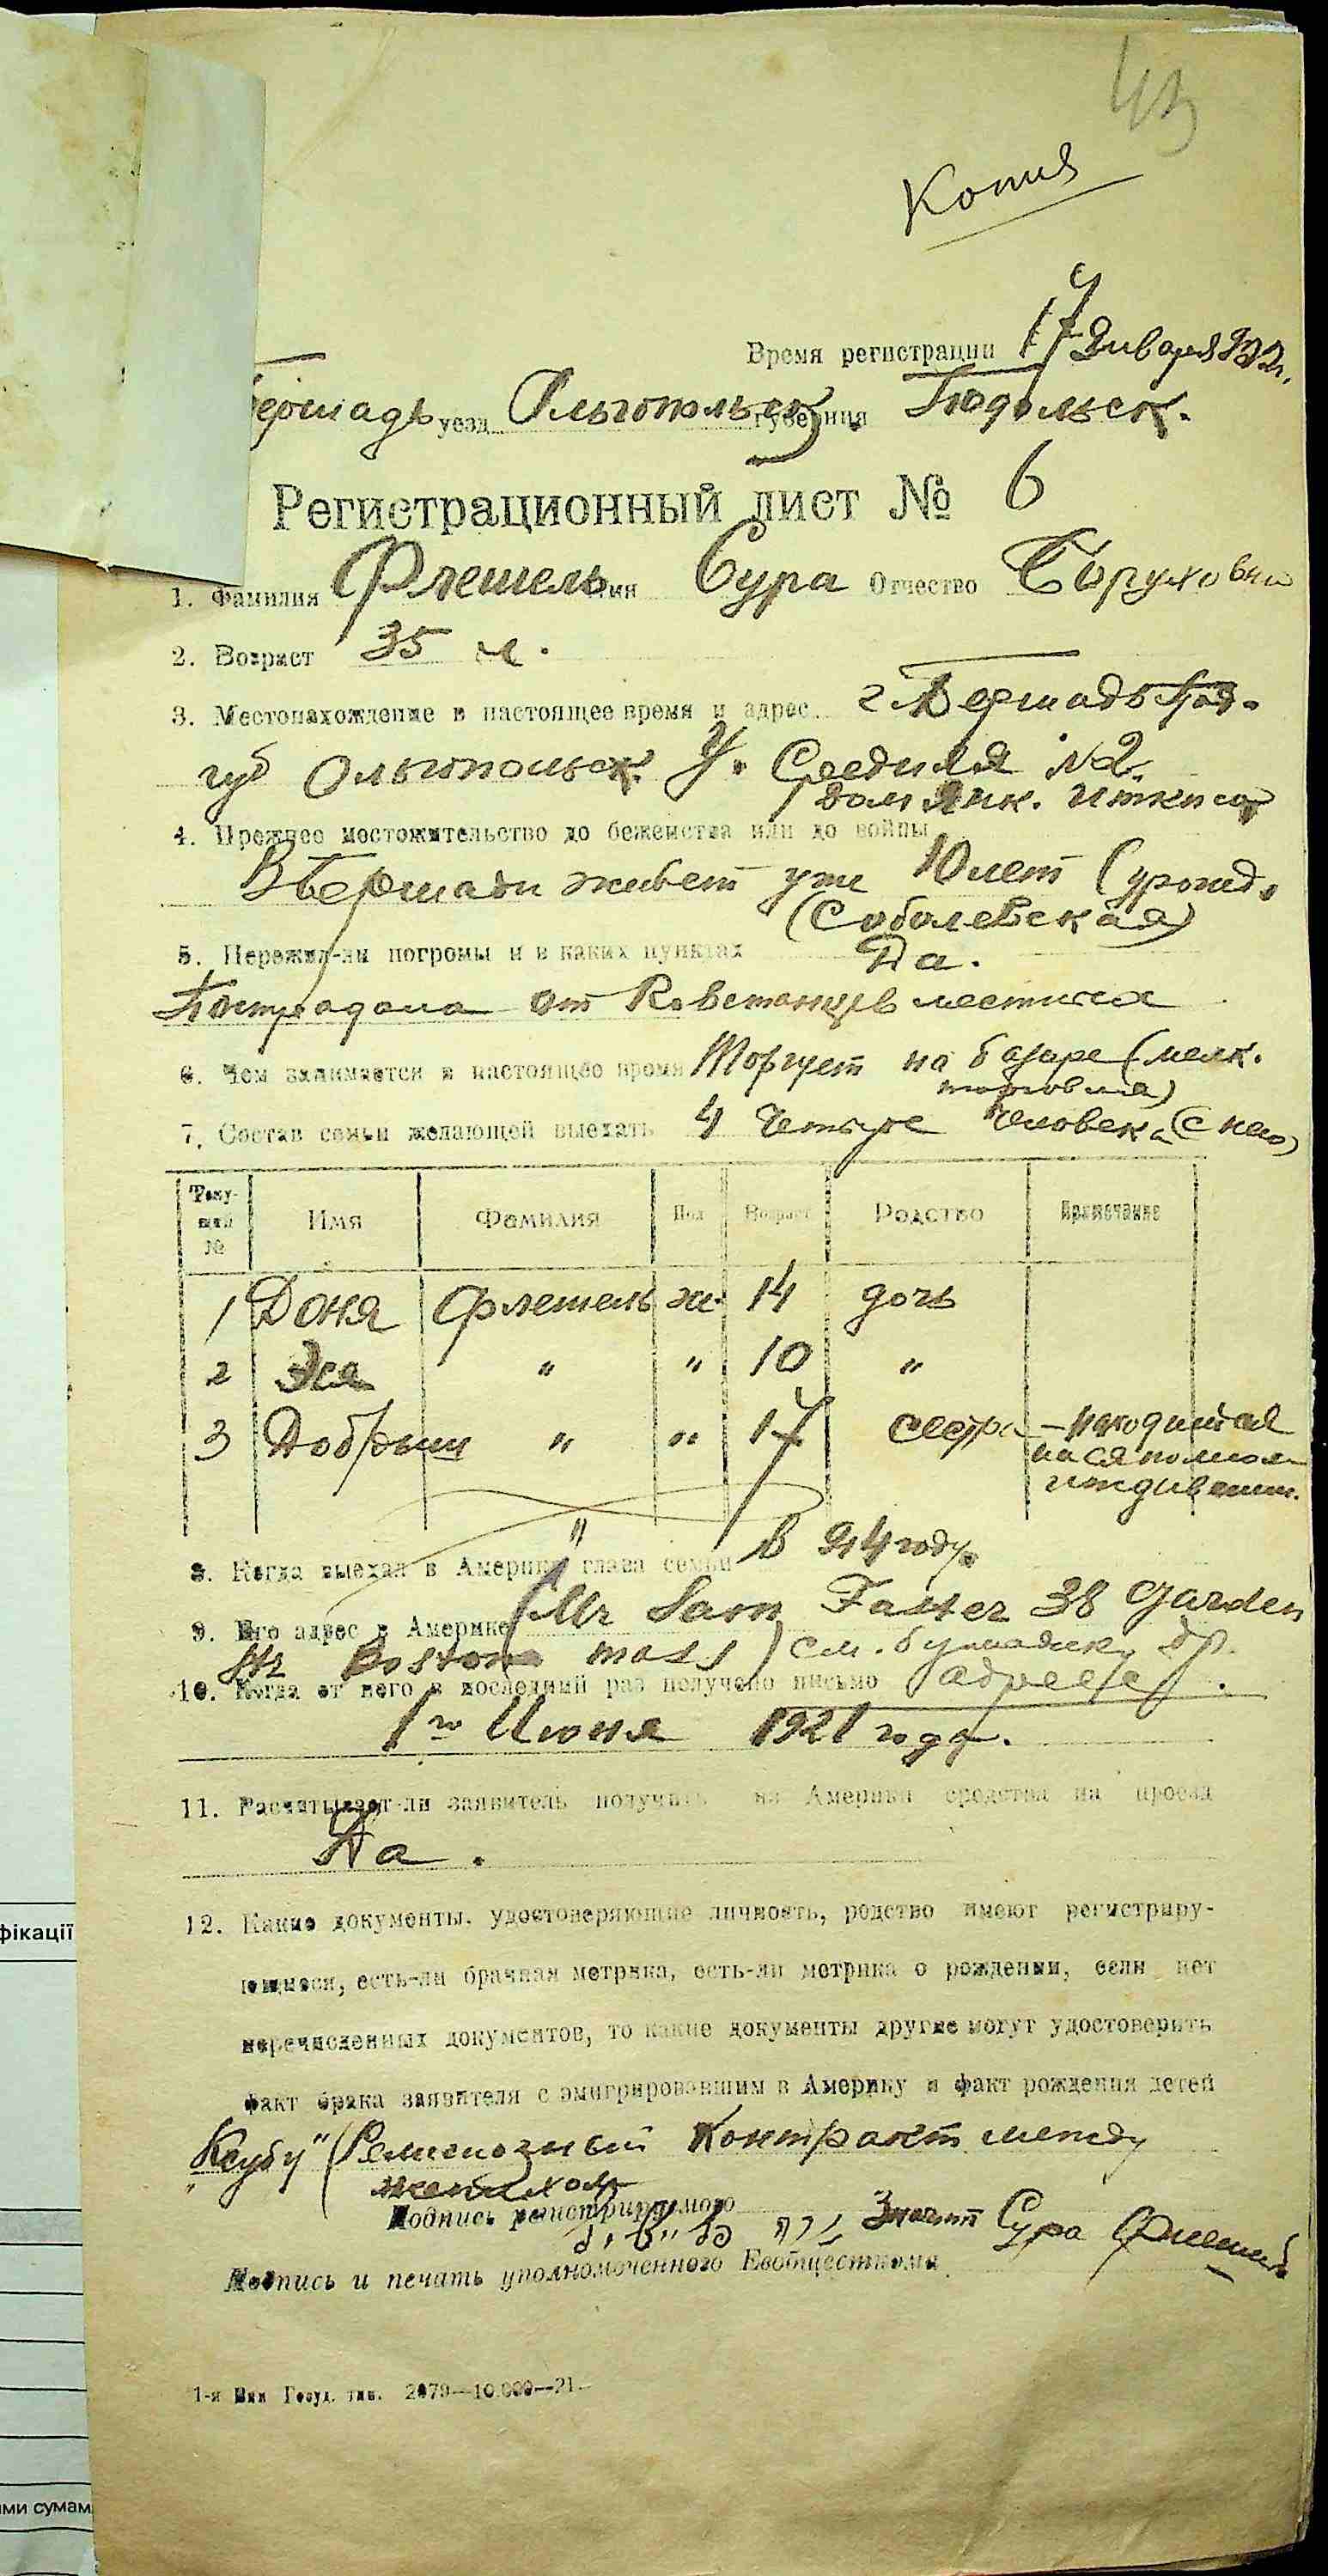 43
Копия
Время регистрации 17 Января 922г.
Бершадь уезд Ольгопольск. губерния Подольск.
Регистрационный лист № 6
1. Фамилия Флешель Имя Сура Отчество Боруховна
2. Возраст 35 л.
3. Местонахождение в настоящее время и адрес г. Бершадь Под.
губ Ольгопольск. У. Средняя № 2
дом Янк. Иткиса
4. Прежнее местожительство до беженства или до войны
В Бершади живет уже 10 лет (урожд.
(Соболевская)
5. Пережил-ли погромы и в каких пунктах Да.
Пострадала от Повстанцев местных
6. Чем занимается в настоящее время Торгует на базаре (мелк.
торговля)
7. Состав семьи желающей выехать 4 Четыре Человека (с нею)
Теку-
щий
№ Имя Фамилия Пол Возраст Родство Примечание
1 Доня Флешель ж. 14 дочь
2 Эся " " 10 "
3 Добрыш " " 17 сестра - находящаяся
на полном
иждивении.
8. Когда выехал в Америку глава семьи в 914 году.
9. Его адрес в Америке (Mr Sam Fasser 38 Garden
Str Boston mass) см. бумажку др.
адресе
10. Когда от него в последний раз получено письмо
1го Июня 1921 года.
11. Расчитывает-ли заявитель получить из Америки средства на проезд
Да.
12. Какие документы, удостоверяющие личность, родство имеют регистриру-
ющиеся, есть-ли брачная метрика, есть-ли метрика о рождении, если нет
перечисленных документов, то какие документы другие могут удостоверить
факт брака заявителя с эмигрировавшим в Америку и факт рождения детей
"Ксубу" (Религиозный Контракт между
женихом
Подпись регистрируемого Значит Сура Флешель
Подпись и печать уполномоченного Евобщесткома
1-я Вин Госуд. тип. 2079—10.000—21—
фікації
ими сумам